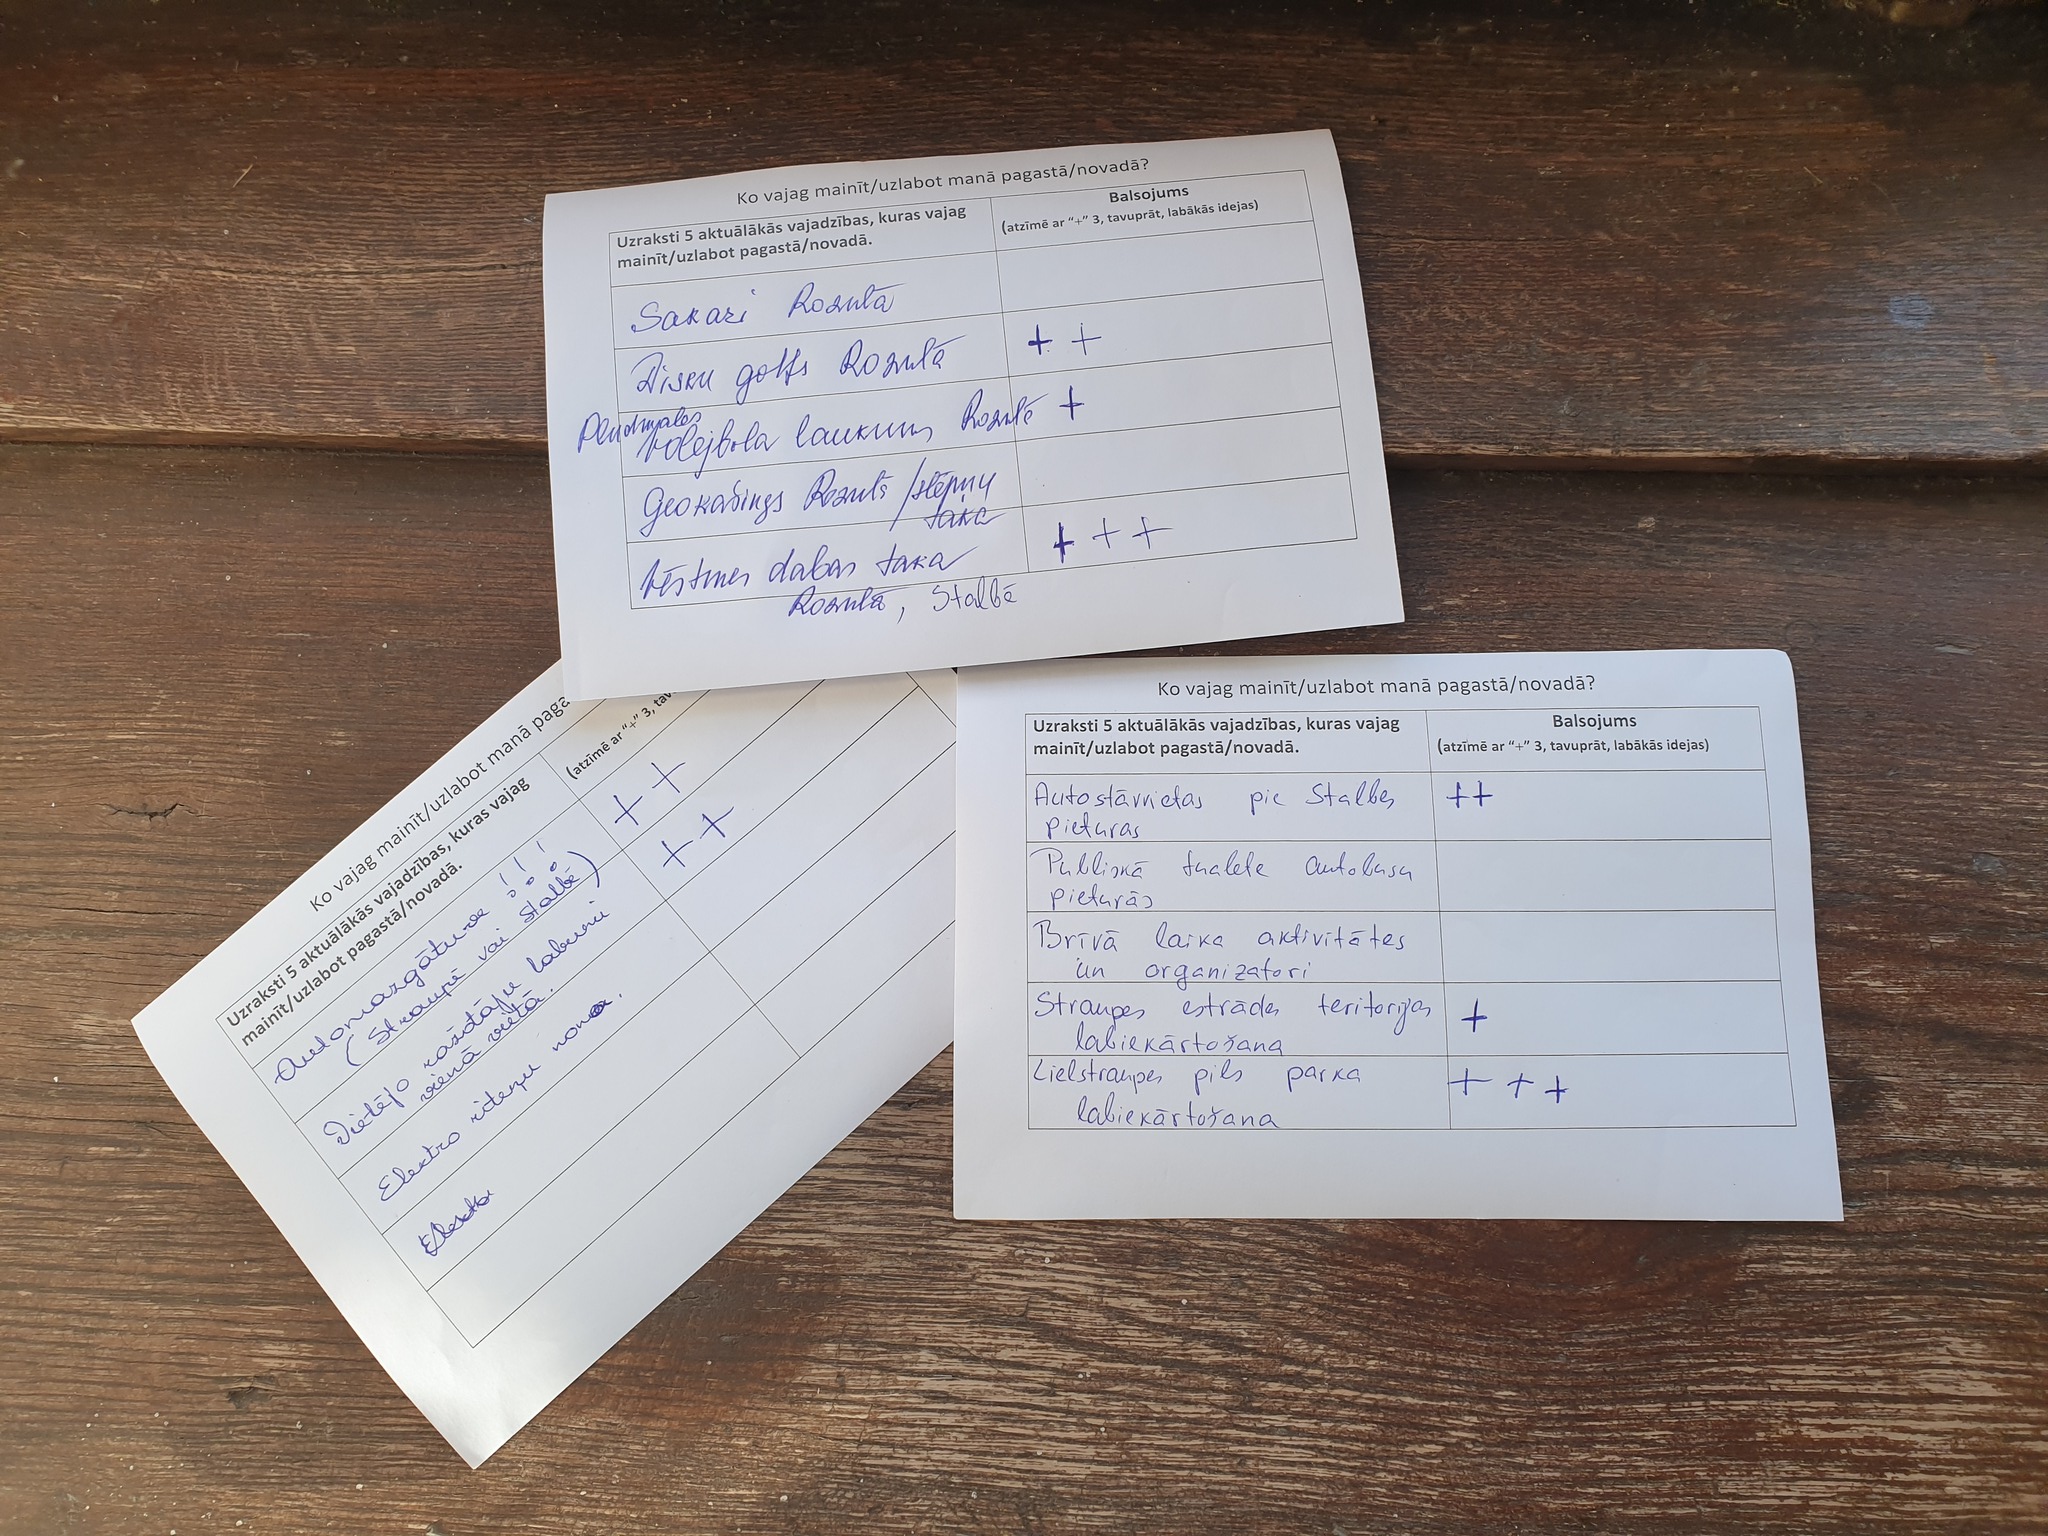 Ko vajag mainīt/uzlabot manā pagastā/novadā?
Uzraksti 5 aktuālākās vajadzības, kuras vajag
mainīt/uzlabot pagastā/novadā.
Balsojums
(atzīmē ar "+" 3, tavuprāt, labākās idejas)
Sakari Rozulā
Disku golfs Rozulā
+ +
Pludmales
volejbola laukums Rozulā
+
Geokašings Rozulā /slēpņu
taka
Vēstures dabas taka
+ + +
Rozulā, Stalbē
Ko vajag mainīt/uzlabot manā paga
Uzraksti 5 aktuālākās vajadzības, kuras vajag
mainīt/uzlabot pagastā/novadā.
(atzīmē ar "+" 3, tav
Automazgātuve !!!
(Straupē vai Stalbē)
+ +
Vietējo ražotāju labumi
vienā vietā.
+ +
Elektro riteņu noma.
Ko vajag mainīt/uzlabot manā pagastā/novadā?
Uzraksti 5 aktuālākās vajadzības, kuras vajag
mainīt/uzlabot pagastā/novadā.
Balsojums
(atzīmē ar "+" 3, tavuprāt, labākās idejas)
Autostāvvietas pie Stalbes
pieturas
++
Publiskā tualete autobusu
pieturās
Brīvā laika aktivitātes
un organizatori
Straupes estrādes teritorijas
labiekārtošana
+
Lielstraupes pils parka
labiekārtošana
+ + +